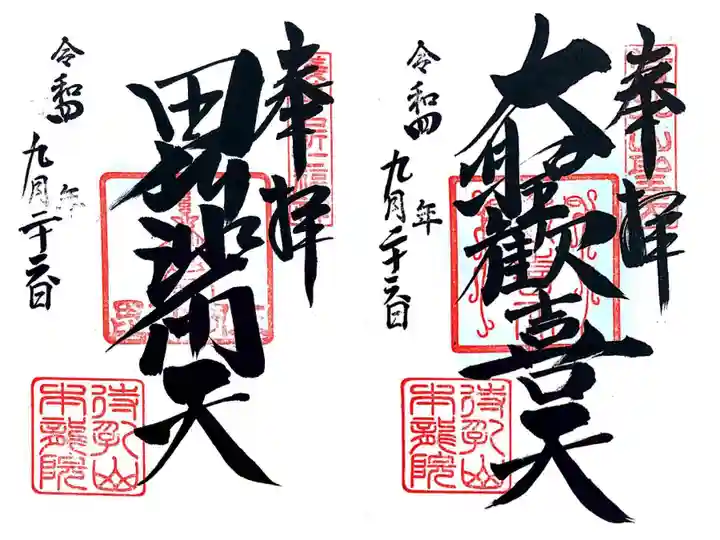 奉拝
大聖歓喜天
令和四年九月二十三日
待乳山
本龍院
奉拝
毘沙門天
令和四年九月二十三日
待乳山
本龍院